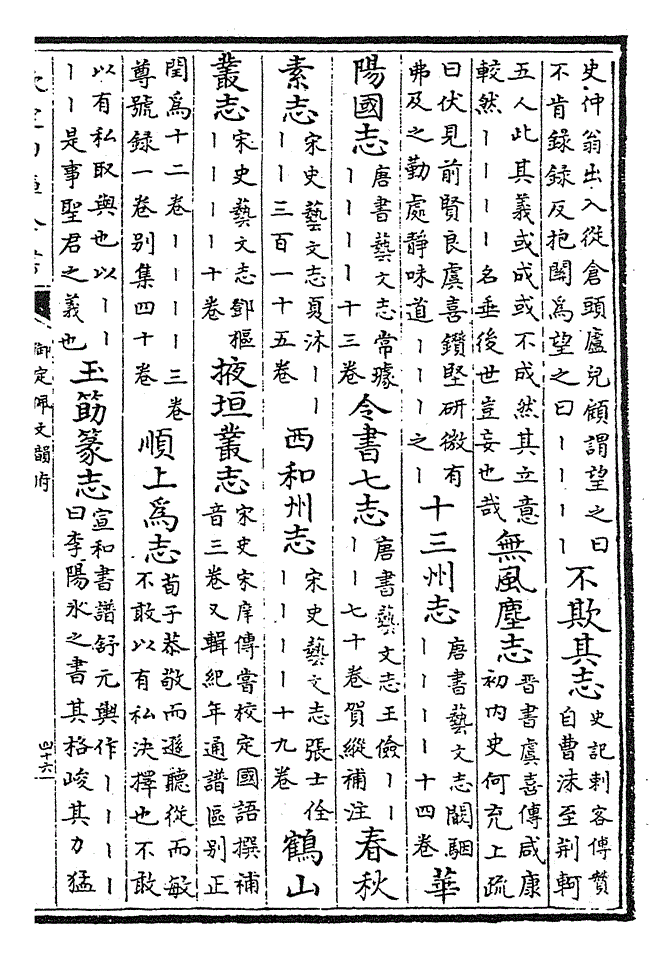 史仲翁出入從倉頭廬兒顧謂望之曰
不肯錄錄反抱關爲望之曰丨丨丨丨
不欺其志
史記刺客傳贊
自曹沫至荆軻
五人此其義或成或不成然其立意
較然丨丨丨丨名垂後世豈妄也哉
無風塵志
晉書虞喜傳咸康
初内史何充上疏
曰伏見前賢良虞喜鑽堅研微有
弗及之勤處靜味道丨丨丨之丨
十三州志
唐書藝文志闞駰
丨丨丨丨十四卷
華
陽國志
唐書藝文志常璩
丨丨丨丨十三卷
令書七志
唐書藝文志王儉丨丨
丨丨七十卷賀縱補注
春秋
素志
宋史藝文志夏沐丨丨
丨丨三百一十五卷
西和州志
宋史藝文志張士佺
丨丨丨丨十九卷
鶴山
叢志
宋史藝文志鄧樞
丨丨丨丨十卷
掖垣叢志
宋史宋庠傳嘗校定國語撰補
音三卷又輯紀年通譜區别正
閏爲十二卷丨丨丨丨三卷
尊號録一卷别集四十卷
順上爲志
荀子恭敬而遜聽從而敏
不敢以有私決擇也不敢
以有私取與也以丨丨
丨丨是事聖君之義也
玉筯篆志
宣和書譜舒元輿作丨丨丨丨
曰李陽氷之書其格峻其力猛
御定佩文韻府
四十六